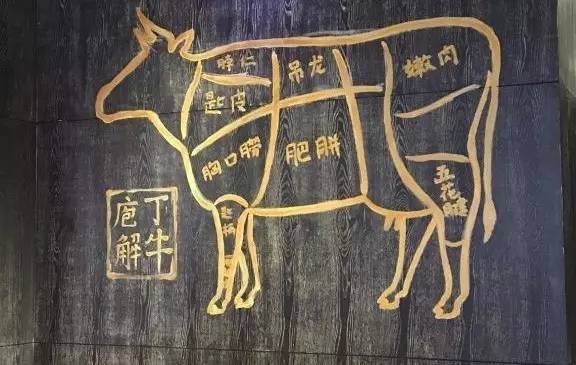 脖仁
吊龙
嫩肉
匙皮
胸口朥
肥胼
五花腱
匙柄
庖丁
解牛